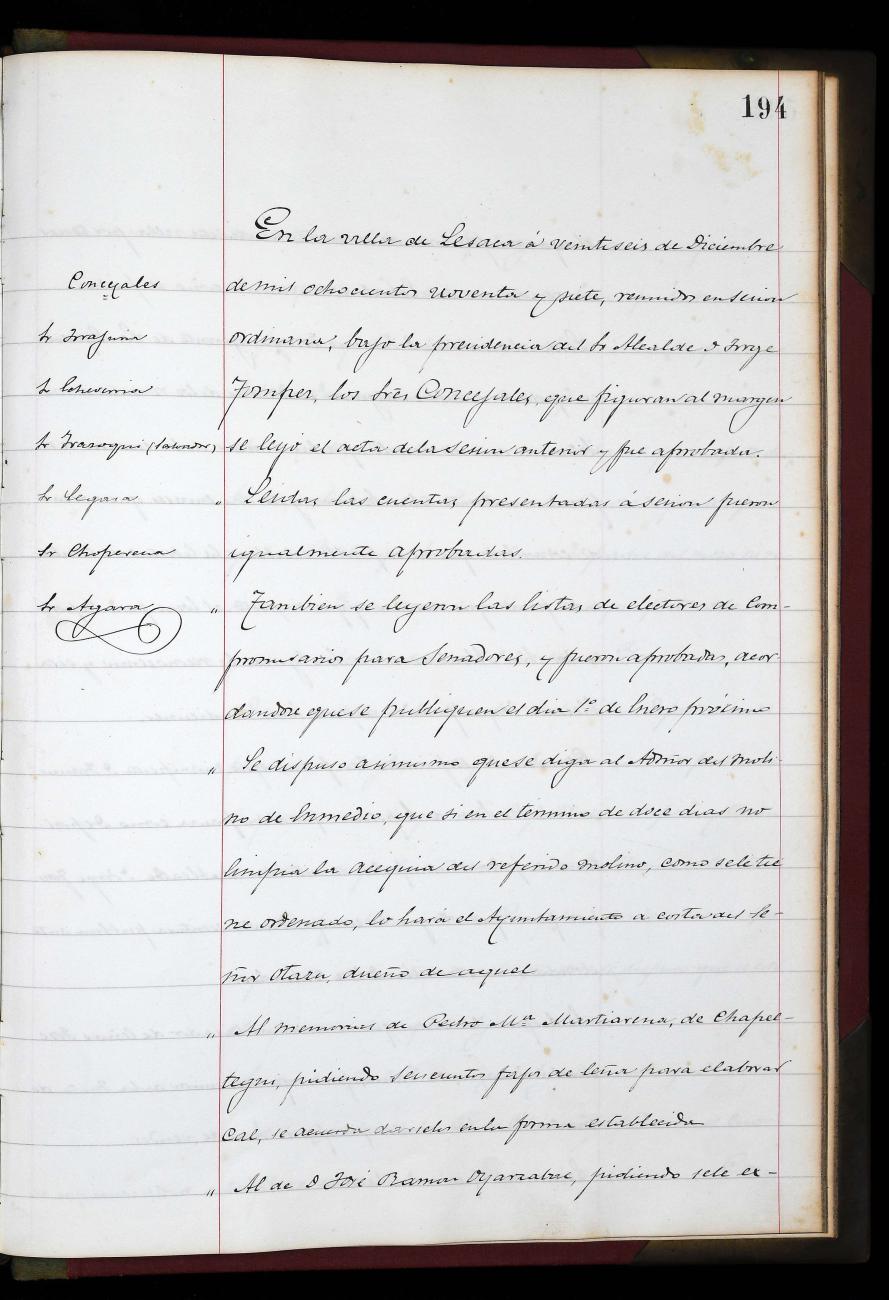 194
En la villa de Lesaca á veintiseis de Diciembre
de mil ochocientos noventa y siete, reunidos en sesion
ordinaria, bajo la presidencia del Sr Alcalde D Jorge
los Sres Concejales, que figuran al margen
se leyó el acta de la sesion anterior y fue aprobada.
Concejales
Sr
Sr Echeverria
Sr Irazoqui (Salvador)
Sr Legasa
Sr Choperena
Sr
" Leidas las cuentas presentadas á sesion fueron
igualmente aprobadas.
" Tambien se leyeron las listas de electores de Com-
promisarios para Senadores, y fueron aprobadas, acor-
dandose que se publiquen el dia 1º de Enero próximo
" Se dispuso asimismo que se diga al Admor del Moli-
no de Enmedio, que si en el término de doce dias no
limpia la acequia del referido molino, como se le tie
ne ordenado, lo hará el Ayuntamiento a costa del Se-
ñor Otazu, dueño de aquel
" Al memorial de Pedro Mª Martiarena, de Chapel-
tegui, pidiendo seiscientos fajos de leña para elaborar
Cal, se acuerda darselos en la forma establecida
" Al de D José Ramon Oyarzabal, pidiendo se le ex-